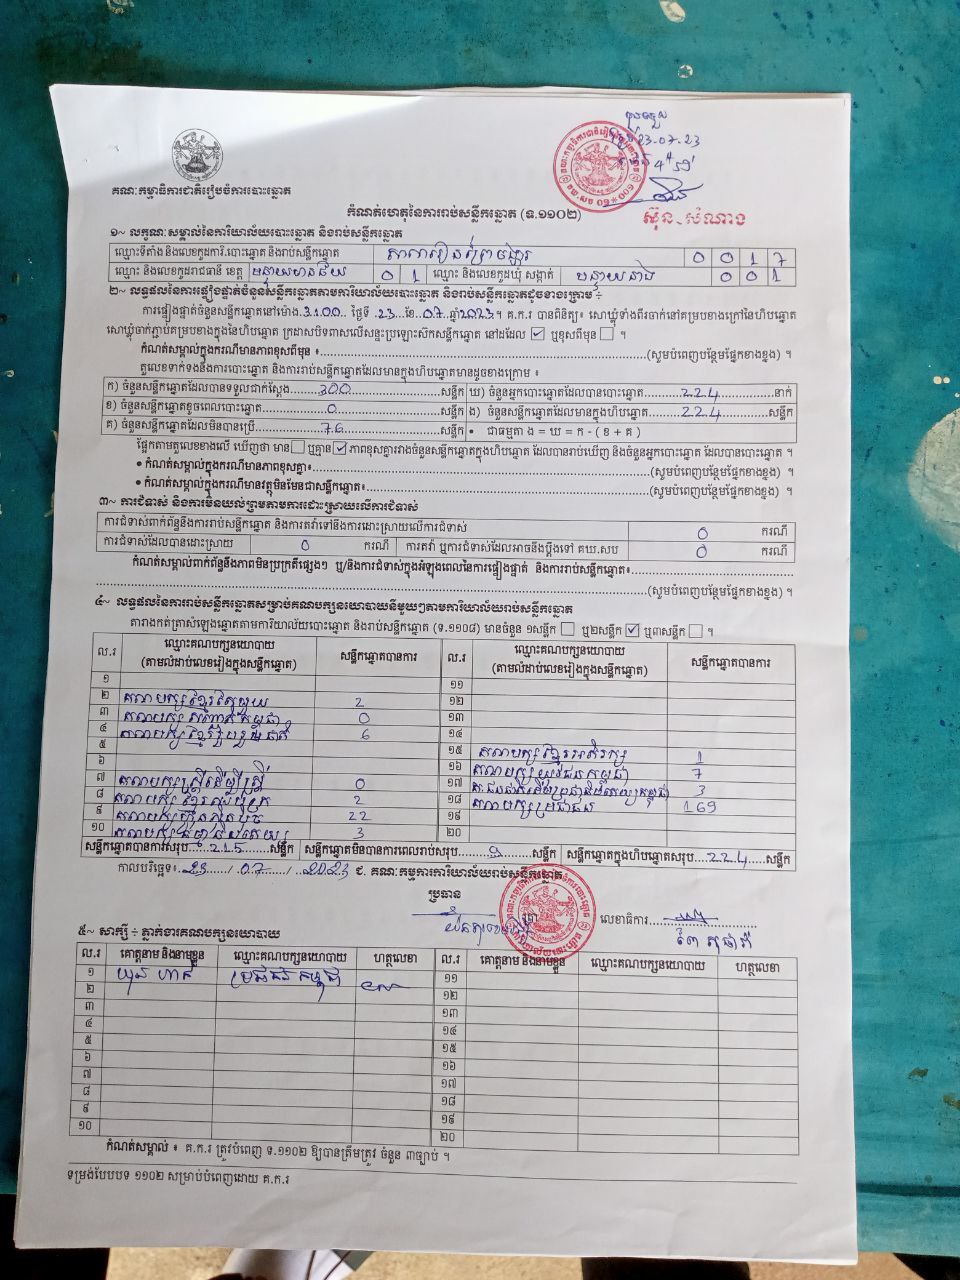 គណៈកម្មាធិការជាតិរៀបចំការបោះឆ្នោត
23-07-23
ស៊ុន សំណាង
កំណត់ហេតុនៃការរាប់សន្លឹកឆ្នោត (ទ.១១០២)
១~ លក្ខណៈសម្គាល់នៃការិយាល័យបោះឆ្នោត និងរាប់សន្លឹកឆ្នោត
ឈ្មោះទីតាំង និងលេខកូដការិ.បោះឆ្នោត និងរាប់សន្លឹកឆ្នោត 0 0 1 7
ឈ្មោះ និងលេខកូដរាជធានី ខេត្ត បន្ទាយមានជ័យ 0 1 ឈ្មោះ និងលេខកូដឃុំ សង្កាត់ 0 0 1
២~ លទ្ធផលនៃការផ្ទៀងផ្ទាត់ចំនួនសន្លឹកឆ្នោតតាមការិយាល័យបោះឆ្នោត និងរាប់សន្លឹកឆ្នោតដូចខាងក្រោម ÷
ការផ្ទៀងផ្ទាត់ចំនួនសន្លឹកឆ្នោតនៅម៉ោង 3:00 ថ្ងៃទី 23 ខែ 07 ឆ្នាំ 2023។ គ.ក.រ បានពិនិត្យ៖ សោឃ្លុំទាំងពីរចាក់នៅគម្របខាងក្រៅនៃហិបឆ្នោត
សោឃ្លុំចាក់ភ្ជាប់គម្របខាងក្នុងនៃហិបឆ្នោត ក្រដាសបិទពាសលើសន្ទះប្រឡោះស៊កសន្លឹកឆ្នោត នៅដដែល ☑ ឬខុសពីមុន ☐ ។
កំណត់សម្គាល់ក្នុងករណីមានភាពខុសពីមុន ៖ (សូមបំពេញបន្ថែមផ្នែកខាងខ្នង) ។
តួលេខទាក់ទងនឹងការបោះឆ្នោត និងការរាប់សន្លឹកឆ្នោតដែលមានក្នុងហិបឆ្នោតមានដូចខាងក្រោម ៖
ក) ចំនួនសន្លឹកឆ្នោតដែលបានទទួលជាក់ស្តែង 300 សន្លឹក ឃ) ចំនួនអ្នកបោះឆ្នោតដែលបានបោះឆ្នោត 224 នាក់
ខ) ចំនួនសន្លឹកឆ្នោតខូចពេលបោះឆ្នោត 0 សន្លឹក ង) ចំនួនសន្លឹកឆ្នោតដែលមានក្នុងហិបឆ្នោត 224 សន្លឹក
គ) ចំនួនសន្លឹកឆ្នោតដែលមិនបានប្រើ 76 សន្លឹក • ជាធម្មតា ង = ឃ = ក - ( ខ + គ )
ផ្អែកតាមតួលេខខាងលើ ឃើញថា មាន ☐ ឬគ្មាន ☑ ភាពខុសគ្នារវាងចំនួនសន្លឹកឆ្នោតក្នុងហិបឆ្នោត ដែលបានរាប់ឃើញ និងចំនួនអ្នកបោះឆ្នោត ដែលបានបោះឆ្នោត ។
• កំណត់សម្គាល់ក្នុងករណីមានភាពខុសគ្នា៖ (សូមបំពេញបន្ថែមផ្នែកខាងខ្នង) ។
• កំណត់សម្គាល់ក្នុងករណីមានវត្ថុមិនមែនជាសន្លឹកឆ្នោត៖ (សូមបំពេញបន្ថែមផ្នែកខាងខ្នង) ។
៣~ ការជំទាស់ និងការមិនយល់ព្រមតាមការដោះស្រាយលើការជំទាស់
ការជំទាស់ពាក់ព័ន្ធនឹងការរាប់សន្លឹកឆ្នោត និងការតវ៉ាទៅនឹងការដោះស្រាយលើការជំទាស់ 0 ករណី
ការជំទាស់ដែលបានដោះស្រាយ 0 ករណី ការតវ៉ា ឬការជំទាស់ដែលអាចនឹងប្តឹងទៅ គឃ.សប 0 ករណី
កំណត់សម្គាល់ពាក់ព័ន្ធនឹងភាពមិនប្រក្រតីផ្សេងៗ ឬ/និងការជំទាស់ក្នុងអំឡុងពេលនៃការផ្ទៀងផ្ទាត់ និងការរាប់សន្លឹកឆ្នោត៖
(សូមបំពេញបន្ថែមផ្នែកខាងខ្នង) ។
៤~ លទ្ធផលនៃការរាប់សន្លឹកឆ្នោតសម្រាប់គណបក្សនយោបាយនីមួយៗតាមការិយាល័យរាប់សន្លឹកឆ្នោត
តារាងកត់ត្រាសំឡេងឆ្នោតតាមការិយាល័យបោះឆ្នោត និងរាប់សន្លឹកឆ្នោត (ទ.១១០៨) មានចំនួន ១សន្លឹក ☐ ឬ២សន្លឹក ☑ ឬ៣សន្លឹក ☐ ។
ល.រ ឈ្មោះគណបក្សនយោបាយ សន្លឹកឆ្នោតបានការ ល.រ ឈ្មោះគណបក្សនយោបាយ សន្លឹកឆ្នោតបានការ
(តាមលំដាប់លេខរៀងក្នុងសន្លឹកឆ្នោត) (តាមលំដាប់លេខរៀងក្នុងសន្លឹកឆ្នោត)
១ ១១
២ គណបក្សខ្មែរតែមួយ 2 ១២
៣ 0 ១៣
៤ គណបក្សខ្មែររួបរួមជាតិ 6 ១៤
៥ ១៥ គណបក្សខ្មែរអភិរក្ស 1
៦ ១៦ គណបក្សយុវជនកម្ពុជា 7
៧ គណបក្សស្ត្រីដើម្បីស្ត្រី 0 ១៧ 3
៨ 2 ១៨ គណបក្សប្រជាជន 169
៩ 22 ១៩
១០ 3 ២០
សន្លឹកឆ្នោតបានការសរុប 215 សន្លឹក សន្លឹកឆ្នោតមិនបានការពេលរាប់សរុប 9 សន្លឹក សន្លឹកឆ្នោតក្នុងហិបឆ្នោតសរុប 224 សន្លឹក
កាលបរិច្ឆេទ៖ 23 / 07 / 2023 ជ. គណៈកម្មការការិយាល័យរាប់សន្លឹកឆ្នោត
ប្រធាន លេខាធិការ
៥~ សាក្សី ÷ ភ្នាក់ងារគណបក្សនយោបាយ
ល.រ គោត្តនាម និងនាមខ្លួន ឈ្មោះគណបក្សនយោបាយ ហត្ថលេខា ល.រ គោត្តនាម និងនាមខ្លួន ឈ្មោះគណបក្សនយោបាយ ហត្ថលេខា
១ ប្រជាជនកម្ពុជា ១១
២ ១២
៣ ១៣
៤ ១៤
៥ ១៥
៦ ១៦
៧ ១៧
៨ ១៨
៩ ១៩
១០ ២០
កំណត់សម្គាល់ ៖ គ.ក.រ ត្រូវបំពេញ ទ.១១០២ ឱ្យបានត្រឹមត្រូវ ចំនួន ៣ច្បាប់ ។
ទម្រង់បែបបទ ១១០២ សម្រាប់បំពេញដោយ គ.ក.រ